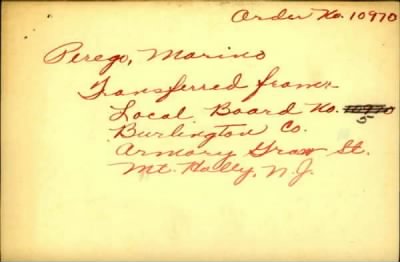 Order No. 10970
Perego, Marino
Transferred from:-
Local Board No. 5
Burlington Co.
Armory Graw St.
Mt. Holly, N.J.